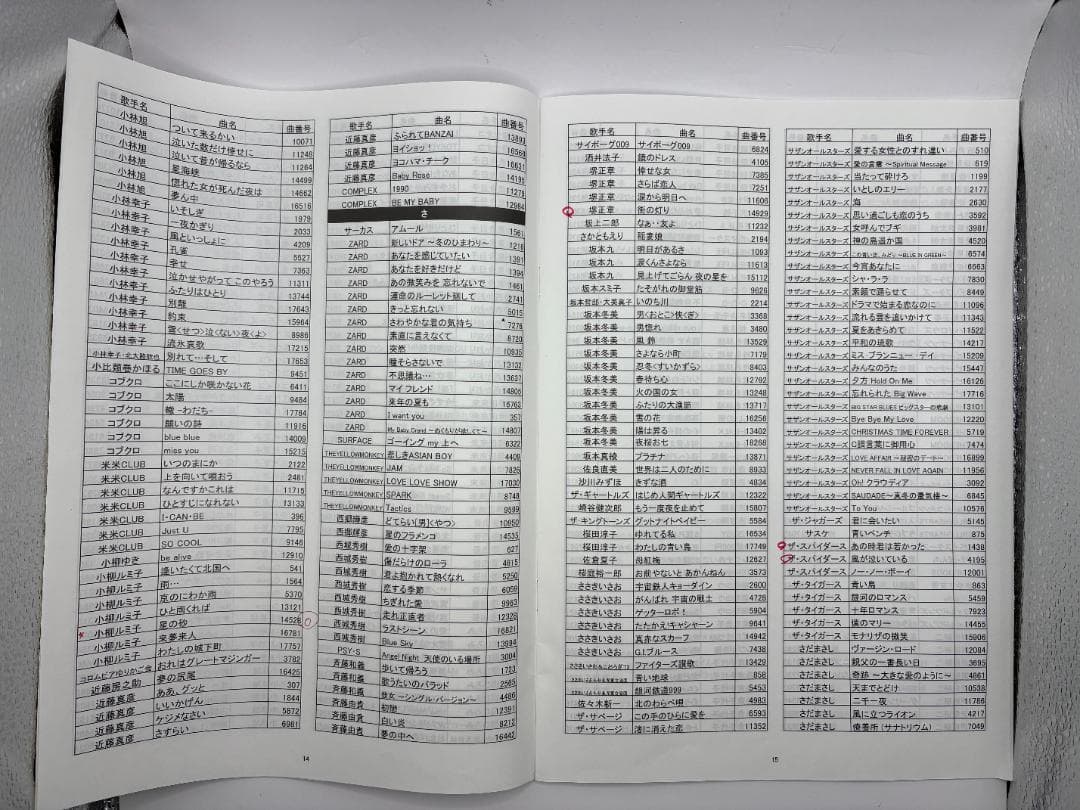 歌手名 曲名 曲番号
小林旭 ついて来るかい 10071
小林旭 泣いた数だけ倖せに 11246
小林旭 泣いて昔が帰るなら 11264
小林旭 星海峡 14499
小林旭 惚れた女が死んだ夜は 14662
小林旭 夢ん中 16516
小林幸子 いそしぎ 1979
小林幸子 一夜かぎり 2033
小林幸子 風といっしょに 4209
小林幸子 孔雀 5527
小林幸子 幸せ 7363
小林幸子 泣かせやがって このやろう 11311
小林幸子 ふたりはひとり 13744
小林幸子 別離 17643
小林幸子 約束 15964
小林幸子 雪<せつ>泣<ない>夜<よ> 8986
小林幸子 流氷哀歌 17215
小林幸子・北大路欣也 別れて…そして 17653
小比類巻かほる TIME GOES BY 9451
コブクロ ここにしか咲かない花 6411
コブクロ 太陽 9484
コブクロ 轍 -わだち- 17784
コブクロ 願いの詩 11916
コブクロ blue blue 14009
コブクロ miss you 15215
米米CLUB いつのまにか 2122
米米CLUB 上を向いて唄おう 2481
米米CLUB なんですかこれは 11715
米米CLUB ひとすじになれない 13133
米米CLUB I・CAN・BE 396
米米CLUB Just U 7795
米米CLUB SO COOL 9146
小柳ゆき be alive 12910
小柳ルミ子 逢いたくて北国へ 541
小柳ルミ子 雨… 1564
小柳ルミ子 京のにわか雨 5370
小柳ルミ子 ひと雨くれば 13121
小柳ルミ子 星の砂 14528
小柳ルミ子 来夢来人 16781
小柳ルミ子 わたしの城下町 17757
コロムビアゆりかご会 おれはグレートマジンガー 3782
近藤房之助 夢の尻尾 16425
近藤真彦 ああ、グッと 307
近藤真彦 いいかげん 1844
近藤真彦 ケジメなさい 5872
近藤真彦 さすらい 6981
歌手名 曲名 曲番号
近藤真彦 ふられてBANZAI 13893
近藤真彦 ヨイショッ! 16566
近藤真彦 ヨコハマ・チーク 16631
近藤真彦 Baby Rose 14196
COMPLEX 1990 13279
COMPLEX BE MY BABY 12984
さ
サーカス アムール 1561
ZARD 新しいドア ~冬のひまわり~ 1218
ZARD あなたを感じていたい 1391
ZARD あなたを好きだけど 1394
ZARD あの微笑みを 忘れないで 1461
ZARD 運命のルーレット廻して 2741
ZARD きっと忘れない 5015
ZARD さわやかな君の気持ち 7276
ZARD 素直に言えなくて 8720
ZARD 突然 10935
ZARD 瞳そらさないで 13132
ZARD 不思議ね… 13637
ZARD マイ フレンド 14806
ZARD 来年の夏も 16763
ZARD I want you 357
ZARD My Baby Grand ~ぬくもりが欲しくて~ 14807
SURFACE ゴーイング my 上へ 6322
THEYELLOWMONKEY 悲しきASIAN BOY 4409
THEYELLOWMONKEY JAM 7826
THEYELLOWMONKEY LOVE LOVE SHOW 17030
THEYELLOWMONKEY SPARK 8748
THEYELLOWMONKEY Tactics 9599
西郷輝彦 どてらい[男]<やつ> 10950
西郷輝彦 星のフラメンコ 14535
西城秀樹 愛の十字架 627
西城秀樹 傷だらけのローラ 4815
西城秀樹 君よ抱かれて熱くなれ 5250
西城秀樹 恋する季節 6059
西城秀樹 ちぎれた愛 9963
西城秀樹 走れ正直者 12328
西城秀樹 ラストシーン 16821
西城秀樹 Blue Sky 13994
PSY・S Angel Night 天使のいる場所 3004
斉藤和義 歩いて帰ろう 1703
斉藤和義 歌うたいのバラッド 2565
斉藤和義 彼女 ~シングル・バージョン~ 4486
斉藤由貴 初戀 12391
斉藤由貴 白い炎 8212
斉藤由貴 夢の中へ 16442
14
歌手名 曲名 曲番号
サイボーグ009 サイボーグ009 6824
酒井法子 鏡のドレス 4105
堺正章 倖せな女 7385
堺正章 さらば恋人 7251
堺正章 涙から明日へ 11606
堺正章 街の灯り 14929
坂上二郎 なぁ・友よ 11232
さかともえり 稲妻娘 2194
坂本九 明日があるさ 1093
坂本九 涙くんさよなら 11613
坂本九 見上げてごらん 夜の星を 15112
坂本スミ子 たそがれの御堂筋 9626
坂本哲郎・大英真子 いのち川 2214
坂本冬美 男<おとこ>侠<ぎ> 3368
坂本冬美 男惚れ 3480
坂本冬美 風鈴 13529
坂本冬美 さよなら小町 7179
坂本冬美 忍冬<すいかずら> 8403
坂本冬美 春待ち心 12702
坂本冬美 火の国の女 13248
坂本冬美 ふたりの大漁節 13717
坂本冬美 雪の花 16256
坂本冬美 陽は昇る 13402
坂本冬美 夜桜お七 16268
坂本真綾 プラチナ 13871
佐良直美 世界は二人のために 8933
沙川みずほ きずな酒 4834
ザ・ギャートルズ はじめ人間ギャートルズ 12322
崎谷健次郎 もう一度夜を止めて 15807
ザ・キングトーンズ グッドナイトベイビー 5584
桜田淳子 ゆれてる私 16534
桜田淳子 わたしの青い鳥 17749
佐倉夏子 母紅梅 12627
桜庭裕一郎 お前やないと あかんねん 3573
ささきいさお 宇宙鉄人キョーダイン 2600
ささきいさお がんばれ 宇宙の戦士 4728
ささきいさお ゲッターロボ! 5904
ささきいさお たたかえ!キャシャーン 9641
ささきいさお 真赤なスカーフ 14942
ささきいさお G.I.ブルース 7438
ファイターズ讃歌 13429
青い地球 858
銀河鉄道999 5453
佐々木新一 北のわらべ唄 4983
ザ・サベージ この手のひらに愛を 6593
ザ・サベージ 渚に消えた恋 11352
歌手名 曲名 曲番号
サザンオールスターズ 愛する女性とのすれ違い 510
サザンオールスターズ 愛の言霊 ~Spiritual Message 619
サザンオールスターズ 当たって砕けろ 1199
サザンオールスターズ いとしのエリー 2177
サザンオールスターズ 海 2630
サザンオールスターズ 思い過ごしも恋のうち 3592
サザンオールスターズ 女呼んでブギ 3981
サザンオールスターズ 神の島遥か国 4520
サザンオールスターズ この青い空、みどり ~BLUE IN GREEN~ 6574
サザンオールスターズ 今宵あなたに 6663
サザンオールスターズ シャ・ラ・ラ 7830
サザンオールスターズ 素顔で踊らせて 8449
サザンオールスターズ ドラマで始まる恋なのに 11096
サザンオールスターズ 流れる雲を追いかけて 11343
サザンオールスターズ 夏をあきらめて 11522
サザンオールスターズ 平和の琉歌 14217
サザンオールスターズ ミス・ブランニュー・デイ 15209
サザンオールスターズ みんなのうた 15447
サザンオールスターズ 夕方 Hold On Me 16126
サザンオールスターズ 忘れられた Big Wave 17716
サザンオールスターズ BIG STAR BLUES ビッグスターの悲劇 13101
サザンオールスターズ Bye Bye My Love 12220
サザンオールスターズ CHRISTMAS TIME FOREVER 5719
サザンオールスターズ C調言葉に御用心 7474
サザンオールスターズ LOVE AFFAIR ~秘密のデート~ 16899
サザンオールスターズ NEVER FALL IN LOVE AGAIN 11956
サザンオールスターズ Oh! クラウディア 3092
サザンオールスターズ SAUDADE~真冬の蜃気楼~ 6845
サザンオールスターズ To You 10576
ザ・ジャガーズ 君に会いたい 5145
サスケ 青いベンチ 875
ザ・スパイダース あの時君は若かった 1438
ザ・スパイダース 風が泣いている 4195
ザ・スパイダース ノー・ノー・ボーイ 12001
ザ・タイガース 青い鳥 863
ザ・タイガース 銀河のロマンス 5459
ザ・タイガース 十年ロマンス 7923
ザ・タイガース 僕のマリー 14455
ザ・タイガース モナリザの微笑 15906
さだまさし ヴァージン・ロード 12084
さだまさし 親父の一番長い日 3695
さだまさし 奇跡 ~大きな愛のように~ 4861
さだまさし 天までとどけ 10538
さだまさし 二千一夜 11786
さだまさし 風に立つライオン 4217
さだまさし 療養所(サナトリウム) 7049
15